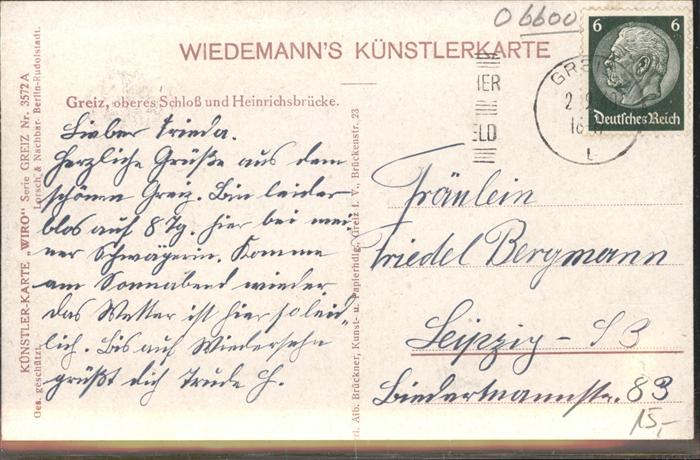 O 6600
WIEDEMANN'S KÜNSTLERKARTE
6 6
Deutsches Reich
GREIZ
IER
ELD
Greiz, oberes Schloß und Heinrichsbrücke.
Lieber Frieda.
Herzliche Grüße aus dem
schönen Greiz. Bin leider
blos auf 8 Tg. hier bei mei-
ner Schwägerin. Komme
am Sonnabend wieder
das Wetter ist hier so leid-
lich. Bis auf Wiedersehn
grüßt dich Trude H.
Fräulein
Friedel Bergmann
Leipzig - S 3
Biedermannstr. 83
15,-
KÜNSTLER-KARTE „WIRO" Serie GREIZ Nr. 3572 A
Ges. geschützt. Lorsch & Nachbar, Berlin-Rudolstadt.
rl. Alb. Brückner, Kunst- u. Papierhdlg., Greiz i. V., Brückenstr. 23